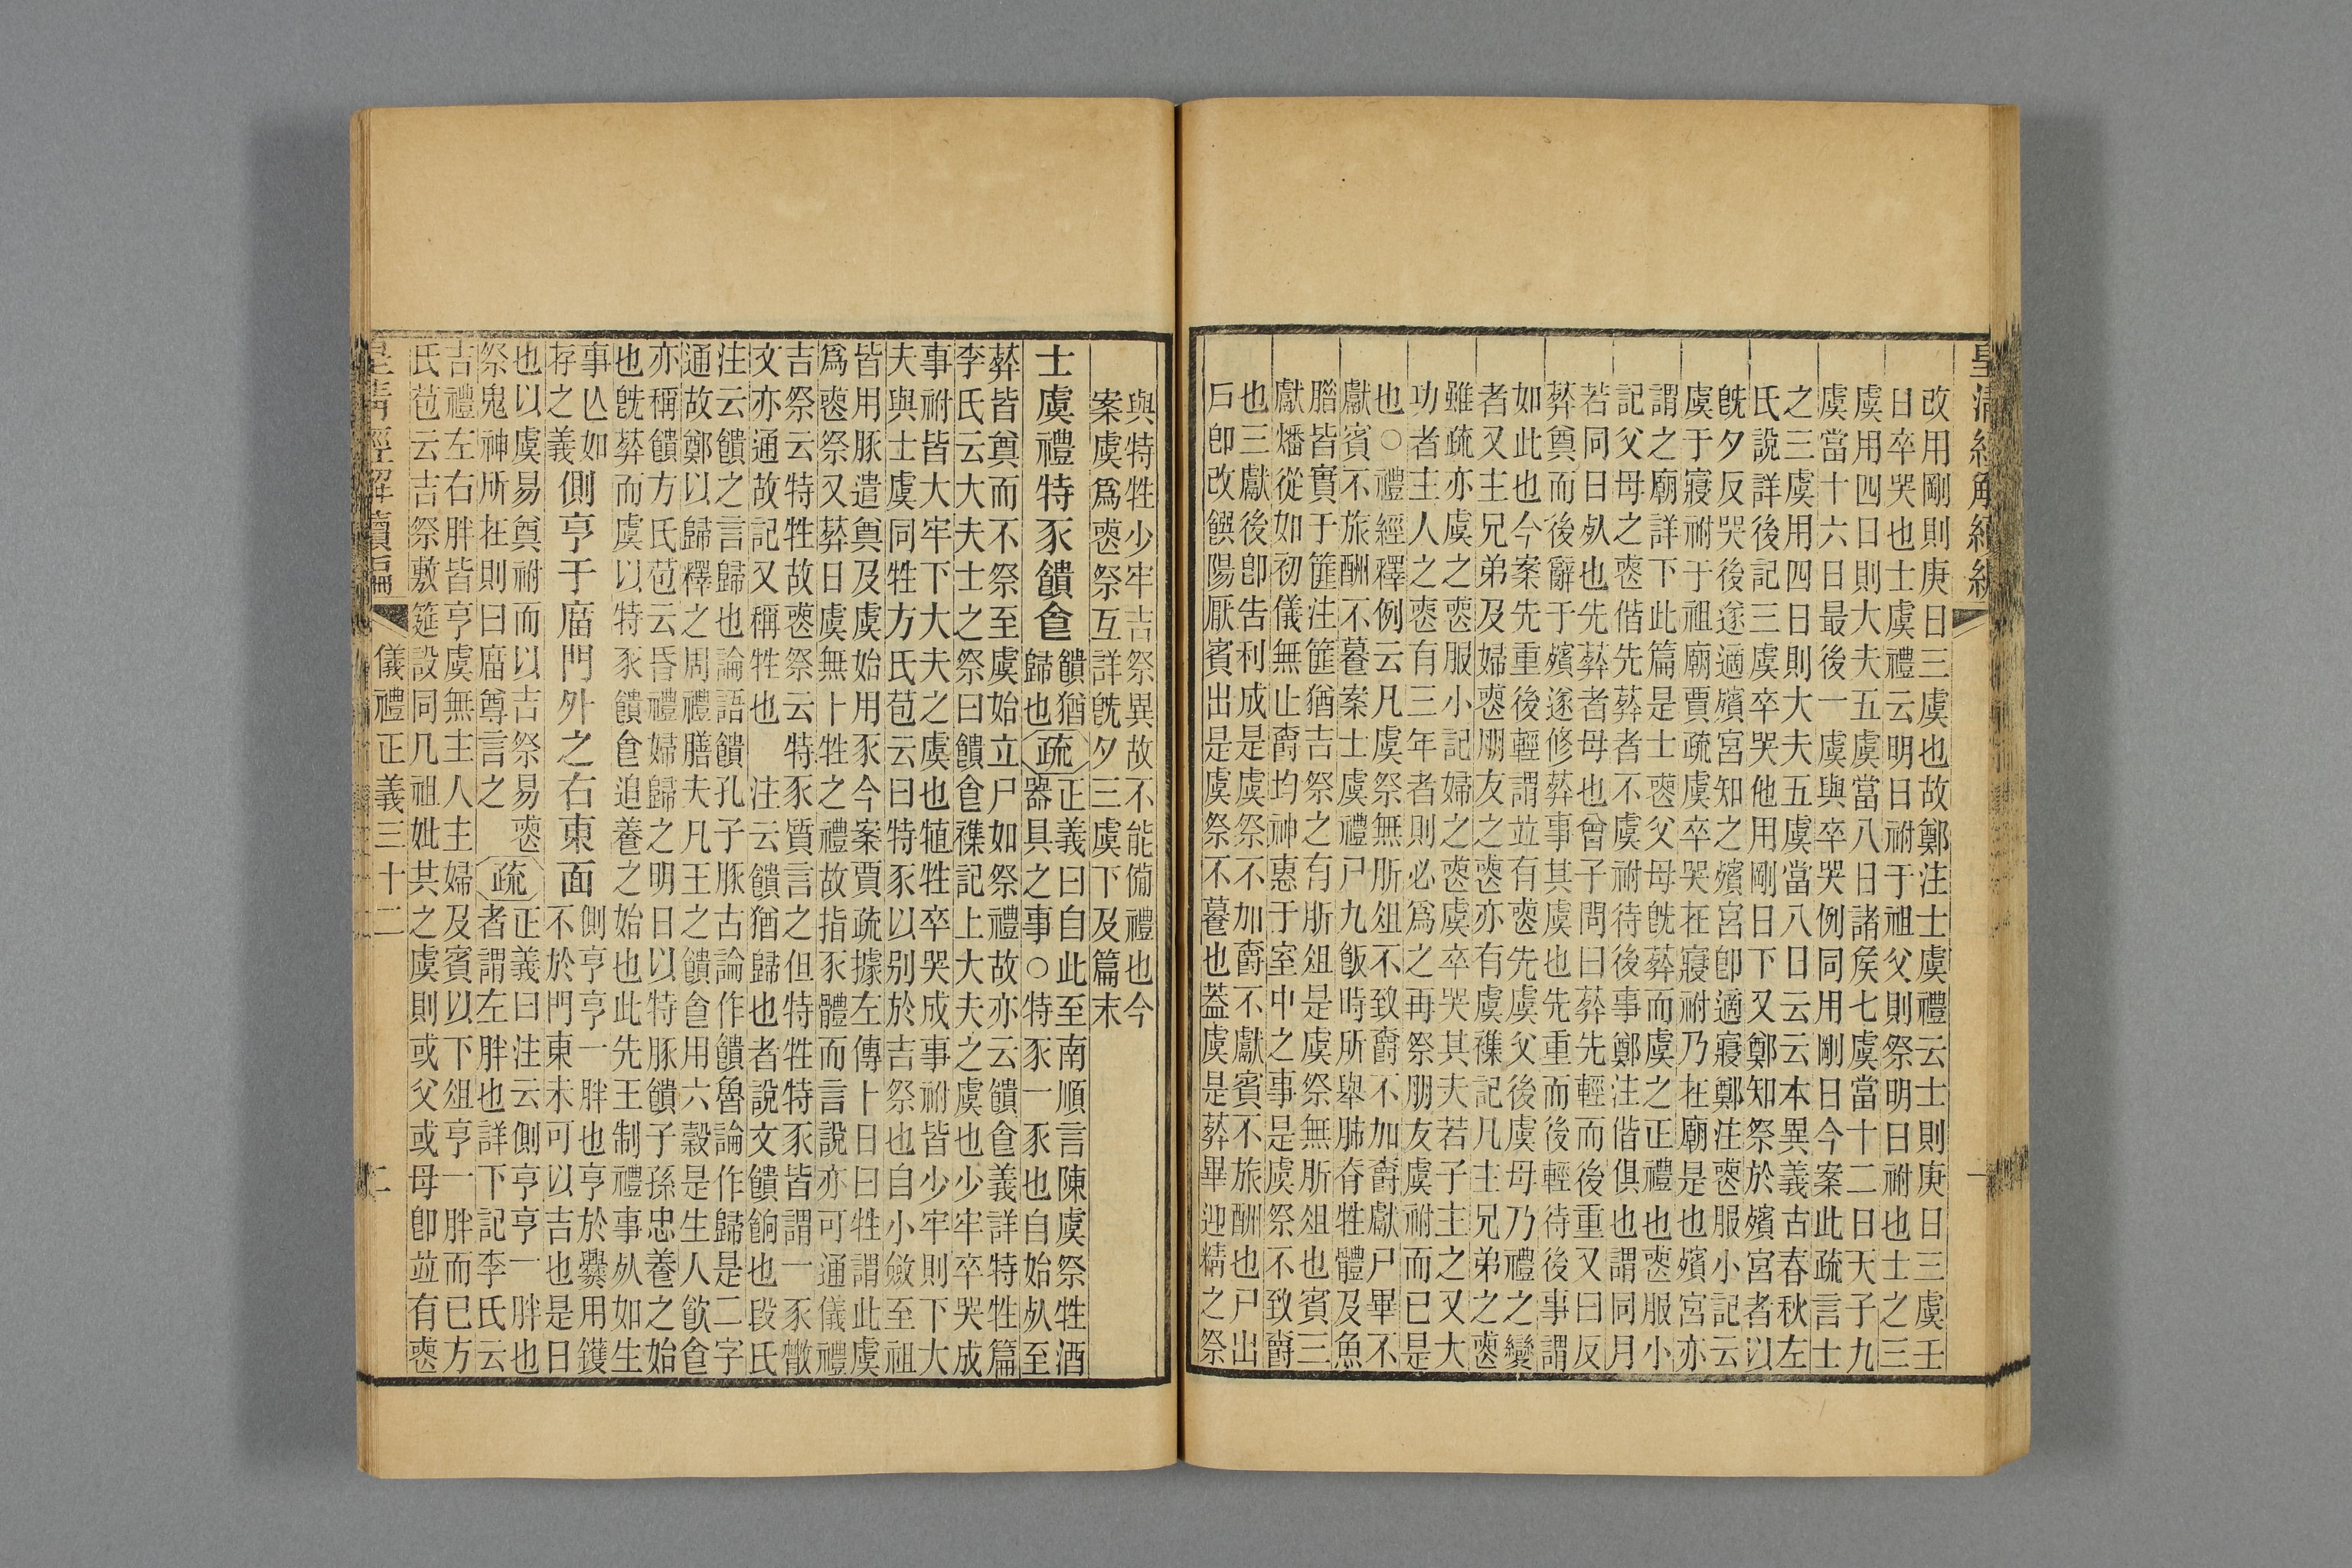 改用剛則庚日三虞也故鄭注士虞禮云士則庚日三虞壬
日卒哭也士虞禮云明日祔于祖父則祭明日祔也士之三
虞用四日則大夫五虞當八日諸矦七虞當十二日天子九
虞當十六日最後一虞與卒哭例同用剛日今案此疏言士
之三虞用四日則大夫五虞當八日云云本異義古春秋左
氏說詳後記三虞卒哭他用剛日下又鄭知祭於殯宮者以
旣夕反哭後遂適殯宮知之殯宮卽適寢鄭注䘮服小記云
虞于寢祔于祖廟賈疏虞卒哭在寢祔乃在廟是也殯宮亦
謂之廟詳下此篇是士䘮父母旣葬而虞之正禮也䘮服小
記父母之䘮偕先葬者不虞祔待後事鄭注偕俱也謂同月
若同日死也先葬者母也曾子問曰葬先輕而後重又曰反
葬奠而後辭于殯遂修葬事其虞也先重而後輕待後事謂
如此也今案先重後輕謂並有䘮先虞父後虞母乃禮之變
者又主兄弟及婦䘮朋友之䘮亦有虞襍記凡主兄弟之䘮
雖疏亦虞之䘮服小記婦之䘮虞卒哭其夫若子主之又大
功者主人之䘮有三年者則必爲之再祭朋友虞祔而已是
也○禮經釋例云凡虞祭無肵俎不致爵不加爵獻尸畢不
獻賓不旅酬不餕案士虞禮尸九飯時所舉肺脊牲體及魚
腊皆實于篚注篚猶吉祭之有肵俎是虞祭無肵俎也賓三
獻燔從如初儀無止爵均神惠于室中之事是虞祭不致爵
也三獻後卽告利成是虞祭不加爵不獻賓不旅酬也尸出
戶卽改饌陽厭賓出是虞祭不餕也葢虞是葬畢迎精之祭
與特牲少牢吉祭異故不能僃禮也今
案虞爲䘮祭互詳旣夕三虞下及篇末
士虞禮特豕饋食
饋猶
歸也
疏
正義曰自此至南順言陳虞祭牲酒
器具之事○特豕一豕也自始死至
葬皆奠而不祭至虞始立尸如祭禮故亦云饋食義詳特牲篇
李氏云大夫士之祭曰饋食襍記上大夫之虞也少牢卒哭成
事祔皆大牢下大夫之虞也犆牲卒哭成事祔皆少牢則下大
夫與士虞同牲方氏苞云曰特豕以別於吉祭也自小斂至祖
皆用豚遣奠及虞始用豕今案賈疏據左傳卜日曰牲謂此虞
爲䘮祭又葬日虞無卜牲之禮故指豕體而言說亦可通儀禮
吉祭云特牲故䘮祭云特豕質言之但特牲特豕皆謂一豕散
文亦通故記又稱牲也　注云饋猶歸也者說文饋餉也段氏
注云饋之言歸也論語饋孔子豚古論作饋魯論作歸是二字
通故鄭以歸釋之周禮膳夫凡王之饋食用六穀是生人飮食
亦稱饋方氏苞云昏禮婦歸之明日以特豚饋子孫忠養之始
也旣葬而虞以特豕饋食追養之始也此先王制禮事死如生
事亾如
存之義
側亨于廟門外之右東面
側亨亨一胖也亨於爨用鑊
不於門東未可以吉也是日
也以虞易奠祔而以吉祭易䘮
祭鬼神所在則曰廟尊言之
疏
正義曰注云側亨亨一胖也
者謂左胖也詳下記李氏云
吉禮左右胖皆亨虞無主人主婦及賓以下俎亨一胖而已方
氏苞云吉祭敷筵設同几祖妣共之虞則或父或母卽並有䘮
儀禮正義三十二
二